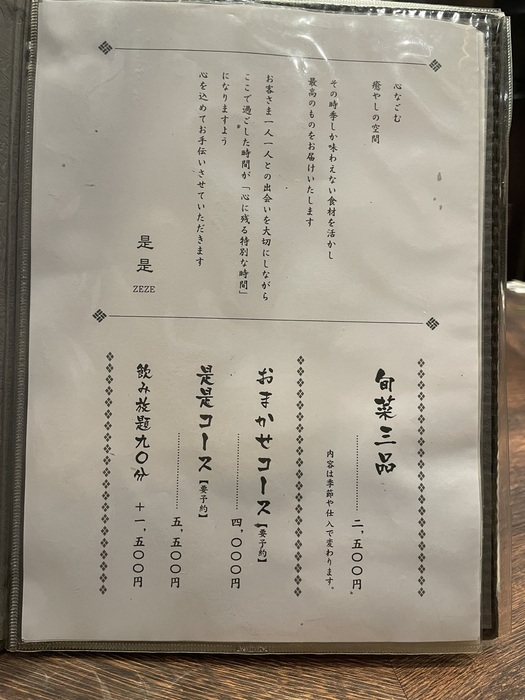 心なごむ
癒やしの空間
その時季しか味わえない食材を活かし
最高のものをお届けいたします
お客さま一人一人との出会いを大切にしながら
ここで過ごした時間が「心に残る特別な時間」
になりますよう
心を込めてお手伝いさせていただきます
是是
ZEZE
旬菜三品 二,五〇〇円
内容は季節や仕入で変わります。
おまかせコース【要予約】 四,〇〇〇円
是是コース【要予約】 五,五〇〇円
飲み放題九〇分 +一,五〇〇円